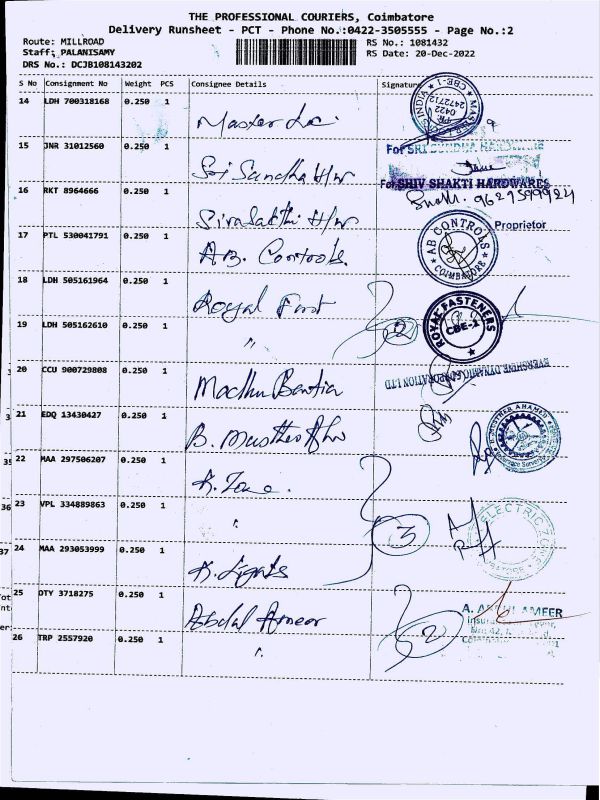 THE PROFESSIONAL COURIERS, Coimbatore
Delivery Runsheet - PCT - Phone No.:0422-3505555 - Page No.:2
Route: MILLROAD RS No.: 1081432
Staff: PALANISAMY RS Date: 20-Dec-2022
DRS No.: DCJB108143202
S No Consignment No Weight PCS Consignee Details Signature
14 LDH 700318168 0.250 1 Master
MASTER INDIA CBE-1 PH: 0422 2472712
15 JNR 31012560 0.250 1 Sri Sandha H/w
For SRI HARDWARE
16 RKT 8964666 0.250 1 Sivasakthi H/w
For SHIV SHAKTI HARDWARES
9629599924
Proprietor
17 PTL 530041791 0.250 1 A.B. Controls.
AB CONTROLS COIMBATORE
18 LDH 505161964 0.250 1 Royal Fast
ROYAL FASTENERS CBE-1
19 LDH 505162610 0.250 1 "
2
20 CCU 900729808 0.250 1 Madhu
EVERSHINE DYNAMIC CORPORATION LTD
21 EDQ 13430427 0.250 1 B.
22 MAA 297506207 0.250 1 A. Zone.
23 VPL 334889863 0.250 1 "
ELECTRIC ZONE
3
24 MAA 293053999 0.250 1 A. Lights
25 OTY 3718275 0.250 1 Abdul Ameer
A. ABDUL AMEER
26 TRP 2557920 0.250 1 "
2